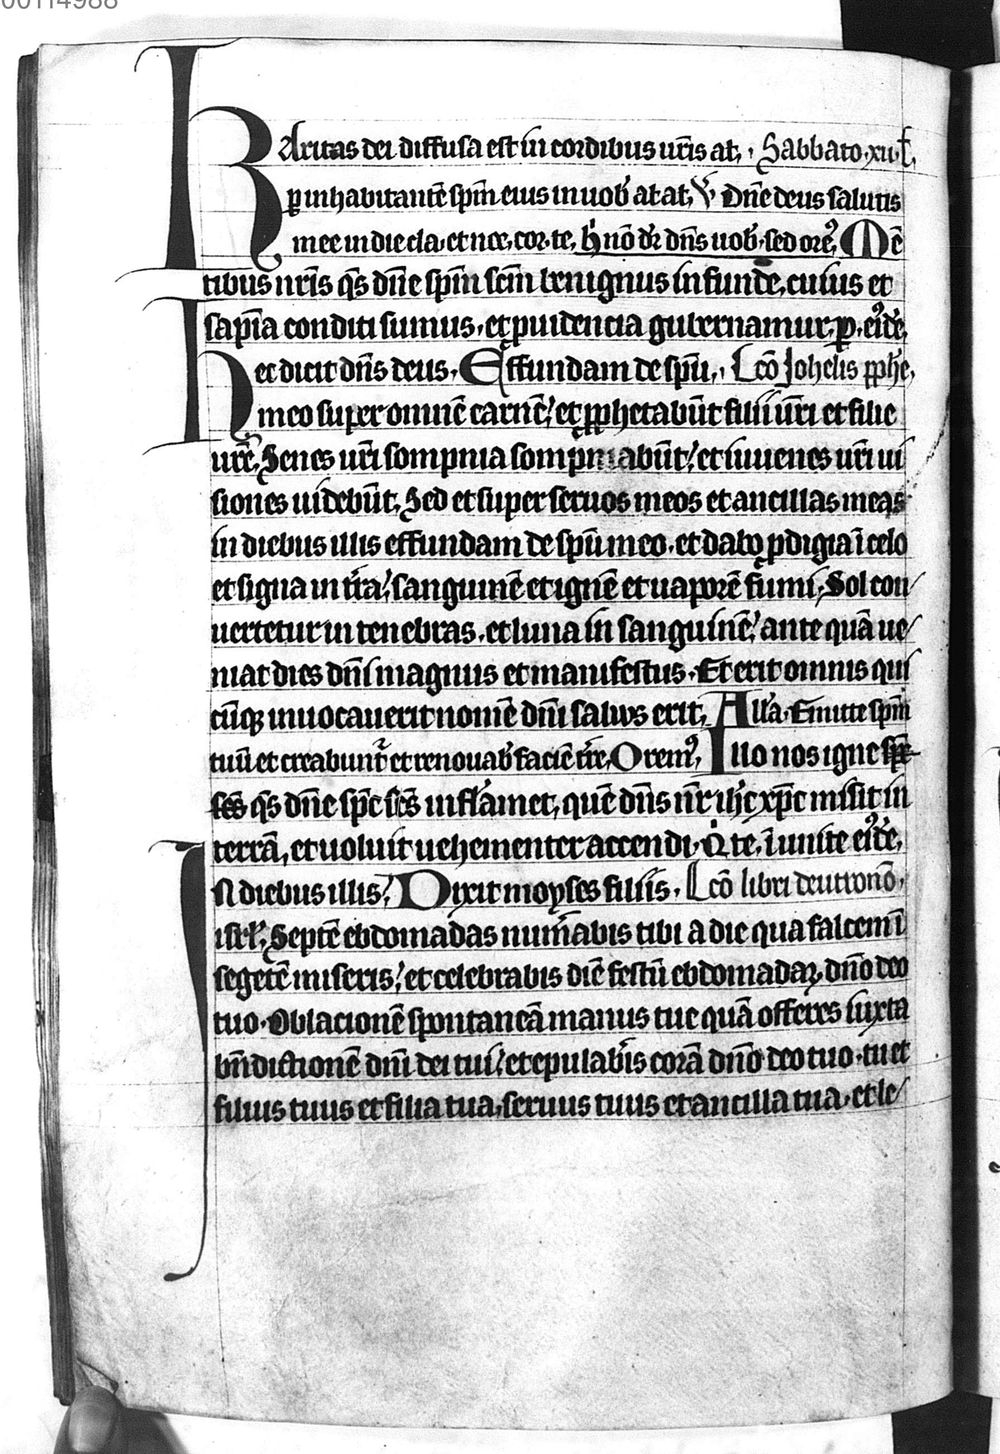 00114988
Karitas dei diffusa est in cordibus ur̄is at, · Sabbato·xii·ł,
p inhabitantē spm̄ eius in uob̄ at at, ℣ Dn̄e deus salutis
mee in die cla·et noc̄·cor·te, hͥ nō dr̄ dn̄s uob̄·sed orēꝰ, Mē
tibus nr̄is q̄s dn̄e spm̄ scm̄ benignus infunde, cuius et
sapīa conditi sumus·et puidencia gubernamur, p· eiꝰdē,
Hec dicit dn̄s deus· Effundam de spū, · Lcō Johelis pphē,
meo super omnē carnē; et pphetabūt filii ur̄i et filie
ur̄ē, Senes ur̄i sompnia sompniabūt; et iuuenes ur̄i ui
siones uidebūt, Sed et super seruos meos et ancillas meas
in diebus illis effundam de spū meo· et dabo pdigia ī celo
et signa in tr̄a; sanguinē et ignē et uaporē fumi, Sol con/
uertetur in tenebras· et luna in sanguinē; ante quā ue/
niat dies dn̄i magnus et manifestus· Et erit omnis qui
cūqꝫ inuocauerit nomē dn̄i saluus erit, All̄a· Emitte spm̄
tuū et creabunt̄ et renouab̄ faciē tr̄e, Oremꝰ, Illo nos igne
q̄s dn̄e spc̄ sc̄s inflām̄et, quē dn̄s nr̄ ihc̄ xpc̄ misit in
terrā, et uoluit uehementer accendi· Qͥ te, ī unite eiꝰdē,
In diebus illis; Dixit moyses filiis· Lcō libri deutronō,
isrl̄, Septē ebdomadas num̄abis tibi a die qua falcem ī
segetē miseris; et celebrabis diē festū ebdomadaꝝ dn̄o deo
tuo· Oblacionē spontaneā manus tue quā offeres iuxta
bn̄dictionē dn̄i dei tui; et epulab̄is corā dn̄o deo tuo· tu et
filius tuus et filia tua, seruus tuus et ancilla tua· et le/